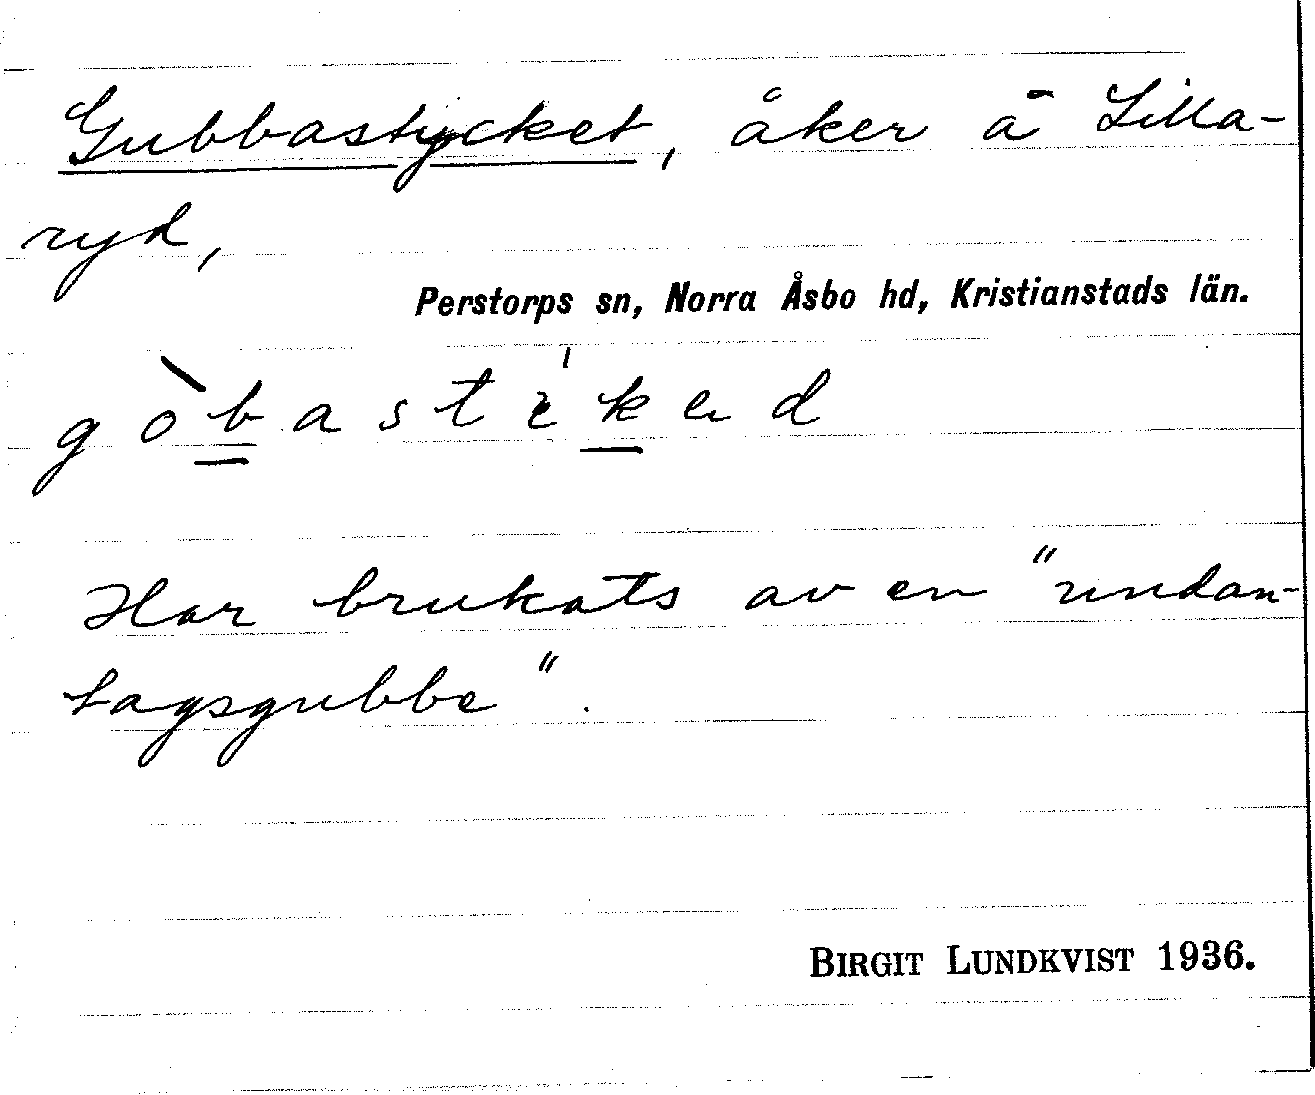 Gubbastycket, åker å Lilla-
ryd,
Perstorps sn, Norra Åsbo hd, Kristianstads län.
gòbastikəd
Har brukats av en "undan-
tagsgubbe".
BIRGIT LUNDKVIST 1936.